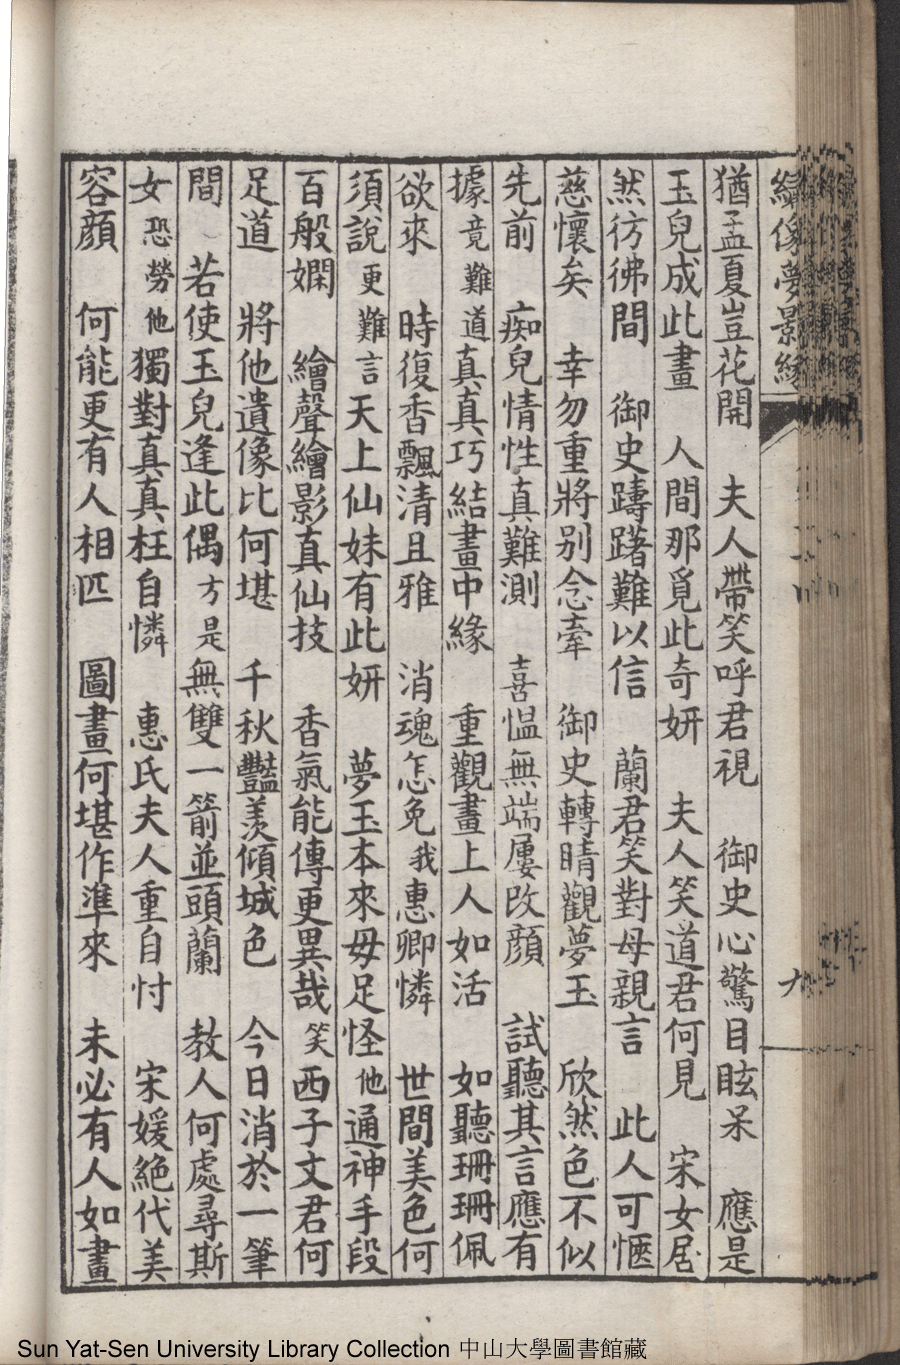 繡像夢影緣
九
猶孟夏豈花開　夫人帶笑呼君視　御史心驚目眩呆　應是
玉兒成此畫　人間那覓此奇妍　夫人笑道君何見　宋女居
然彷彿間　御史躊躇難以信　蘭君笑對母親言　此人可愜
慈懷矣　幸勿重將別念牽　御史轉睛觀夢玉　欣然色不似
先前　痴兒情性真難測　喜愠無端屢改顏　試聽其言應有
據竟難道真真巧結畫中緣　重觀畫上人如活　如聽珊珊佩
欲來　時復香飄清且雅　消魂怎免我惠卿憐　世間美色何
須說更難言天上仙姝有此妍　夢玉本來毋足怪他通神手段
百般嫻　繪聲繪影真仙技　香氣能傳更異哉笑西子文君何
足道　將他遺像比何堪　千秋豔羨傾城色　今日消於一筆
間　若使玉兒逢此偶方是無雙一箭並頭蘭　教人何處尋斯
女恐勞他獨對真真枉自憐　惠氏夫人重自忖　宋媛絕代美
容顏　何能更有人相匹　圖畫何堪作準來　未必有人如畫
Sun Yat-Sen University Library Collection 中山大學圖書館藏